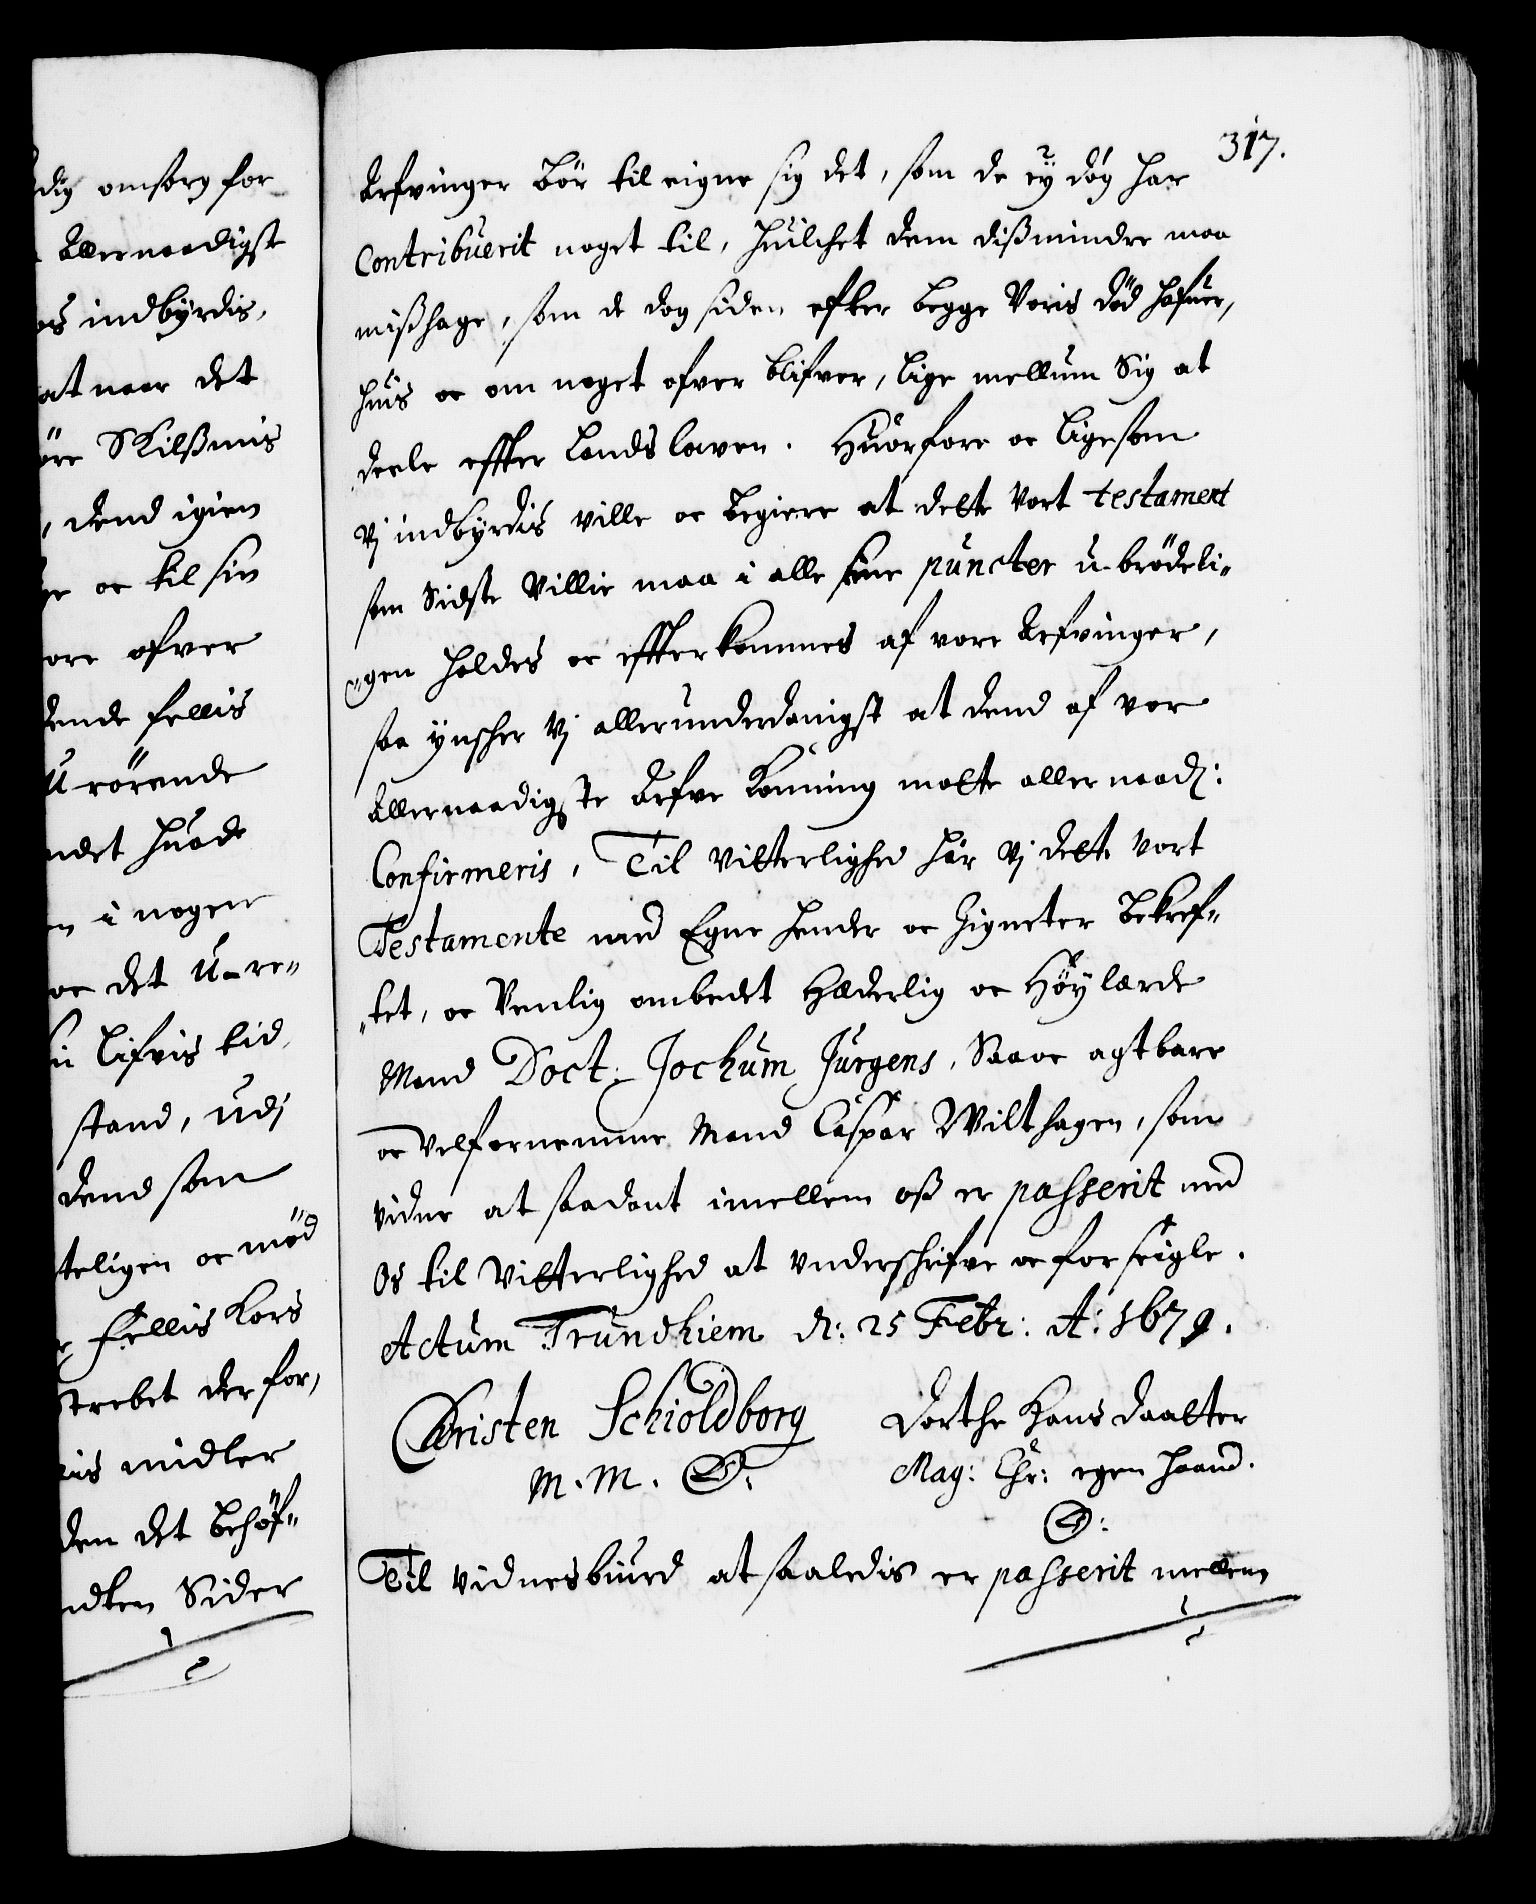 dig omsorg for
Allernaadigst
os indbyrdis,
at naar det
öre Skilßmis
, dend igien
er oc til sin
ore ofver
dende fellis
U-rörende
ndet huade
en i nogen
oc det U-re„
in lifvis tid,
stand, udj
dend som
teligen oc mod
fellis kors
strebet der for,
is midler
den det behöf„
ndten Sider
317.
Arfvinger bör til eigne sig det, som de ey dog har
Contribuerit noget til, huilchet dem dißmindre maa
mißhage, som de dog siden efter begge Voris död hafuer,
huis oc om noget ofver blifver, lige mellum Sig at
deele effter Landsloven. Huorfore oc ligesom
Vj indbyrdis ville oc begiere at dette Vort testament
som Sidste Villie maa i alle sine puncter u-brödeli„
„gen holdes oc effterkommes af vore Arfvinger,
saa ynscher Vj allerunderdanigst at dend af vor
Allernaadigste Arfve Konning motte allernaad:
Confirmeris, Til Vitterlighed har Vj dette Vort
Testamente med Egne hender oc Zigneter bekref„
„tet, oc Venlig ombedet Hæderlig oc Höylærde
Mand Doct: Jochum Jürgens, Saa oc agtbare
oc Velfornemme Mand Caspar Wilthagen, som
vidne at saadant imellem oß er passerit med
Os til Vitterlighed at Underschrifve oc forseigle.
Actum Trundhiem d: 25 Febr: A: 1679.
Christen Schioldborg
M. M. S.
Dorthe Hans Daatter
Mag: Chr: egen haand.
S:
Til Vidnesbiurd at saaledis er passerit mellem